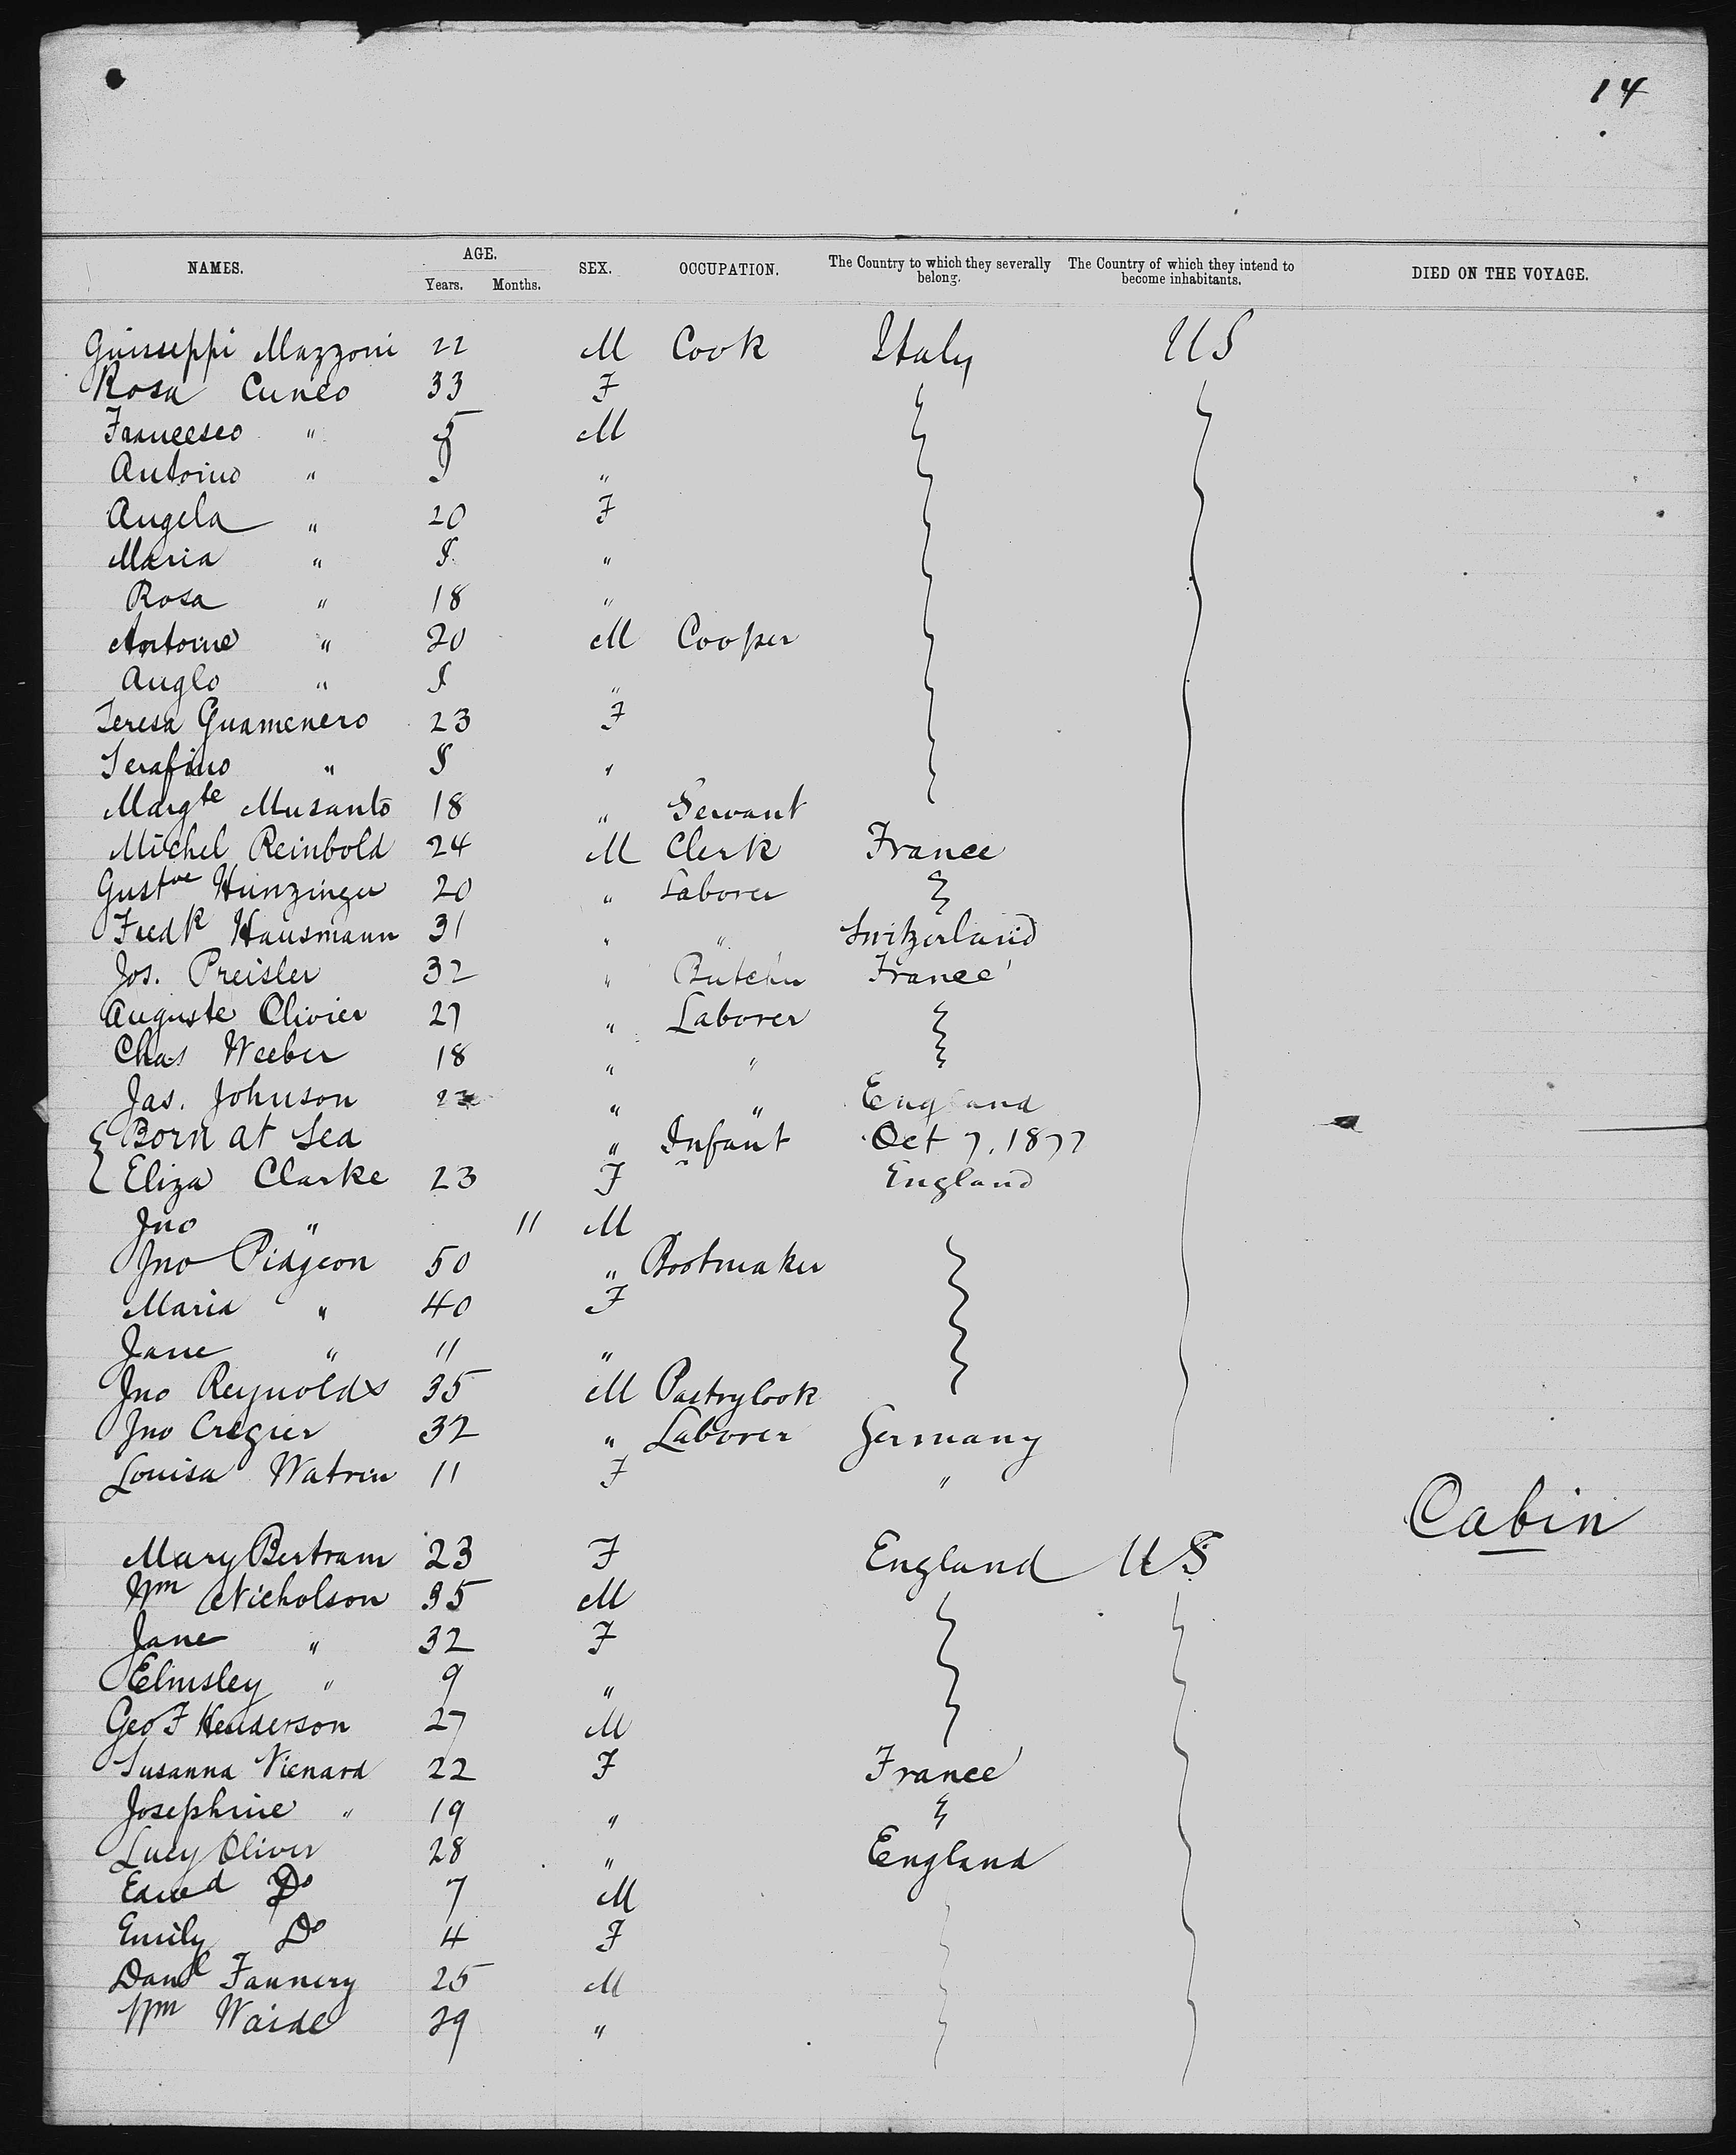 14
NAMES. AGE. Years. Months. SEX. OCCUPATION. The Country to which they severally belong. The Country of which they intend to become inhabitants. DIED ON THE VOYAGE.
Guiseppi Mazzoni 22 M Cook Italy US
Rosa Cuneo 33 F
Francesco " 5 M
Antoino " "
Angela " 20 F
Maria " "
Rosa " 18 "
Antoine " 20 M Cooper
Anglo " "
Teresa Guamenero 23 F
Serafino " "
Margte Musanto 18 " Servant
Michel Reinbold 24 M Clerk France
Gustve Hunzinger 20 " Laborer
Fredk Hausmann 31 " " Switzerland
Jos. Preisler 32 " Butcher France
Auguste Olivier 27 " Laborer
Chas Weeber 18 " "
Jas. Johnson " " England
Born at Sea " Infant Oct 7, 1877
Eliza Clarke 23 F England
Jno " 11 M
Jno Pidgeon 50 " Bootmaker
Maria " 40 F
Jane " 11 "
Jno Reynolds 35 M Pastrycook
Jno Cregier 32 " Laborer Germany
Louisa Watrin 11 F "
Cabin
Mary Bertram 23 F England US
Wm Nicholson 35 M
Jane " 32 F
Elmsley " 9 "
Geo F Henderson 27 M
Susanna Vienard 22 F France
Josephine " 19 "
Lucy Oliver 28 " England
Edwd Do 7 M
Emily Do 4 F
Danl Fannery 25 M
Wm Waide 29 "